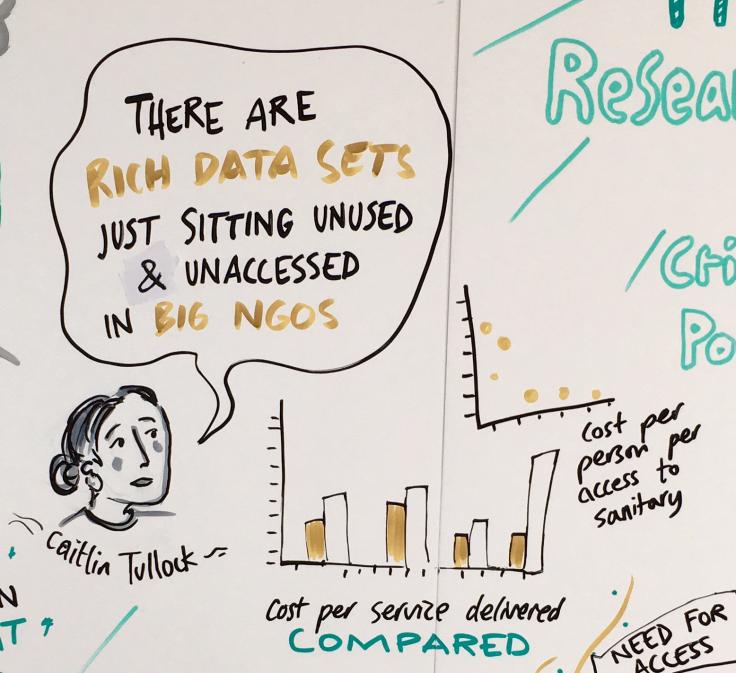 THERE ARE
RICH DATA SETS
JUST SITTING UNUSED
& UNACCESSED
IN BIG NGOS
Caitlin Tullock
Cost per service delivered
COMPARED
Cost per
person per
access to
sanitary
Resea
/Cri
Po
NEED FOR
ACCESS
N
T